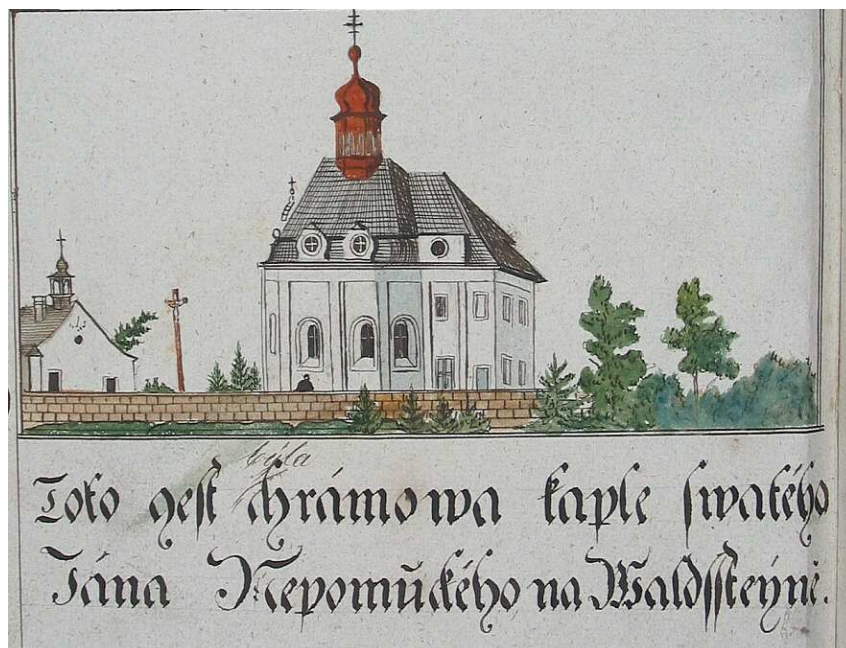 byla
Toto gest chrámowa kaple swatého
Jána Nepomuckého na Waldssteyně.